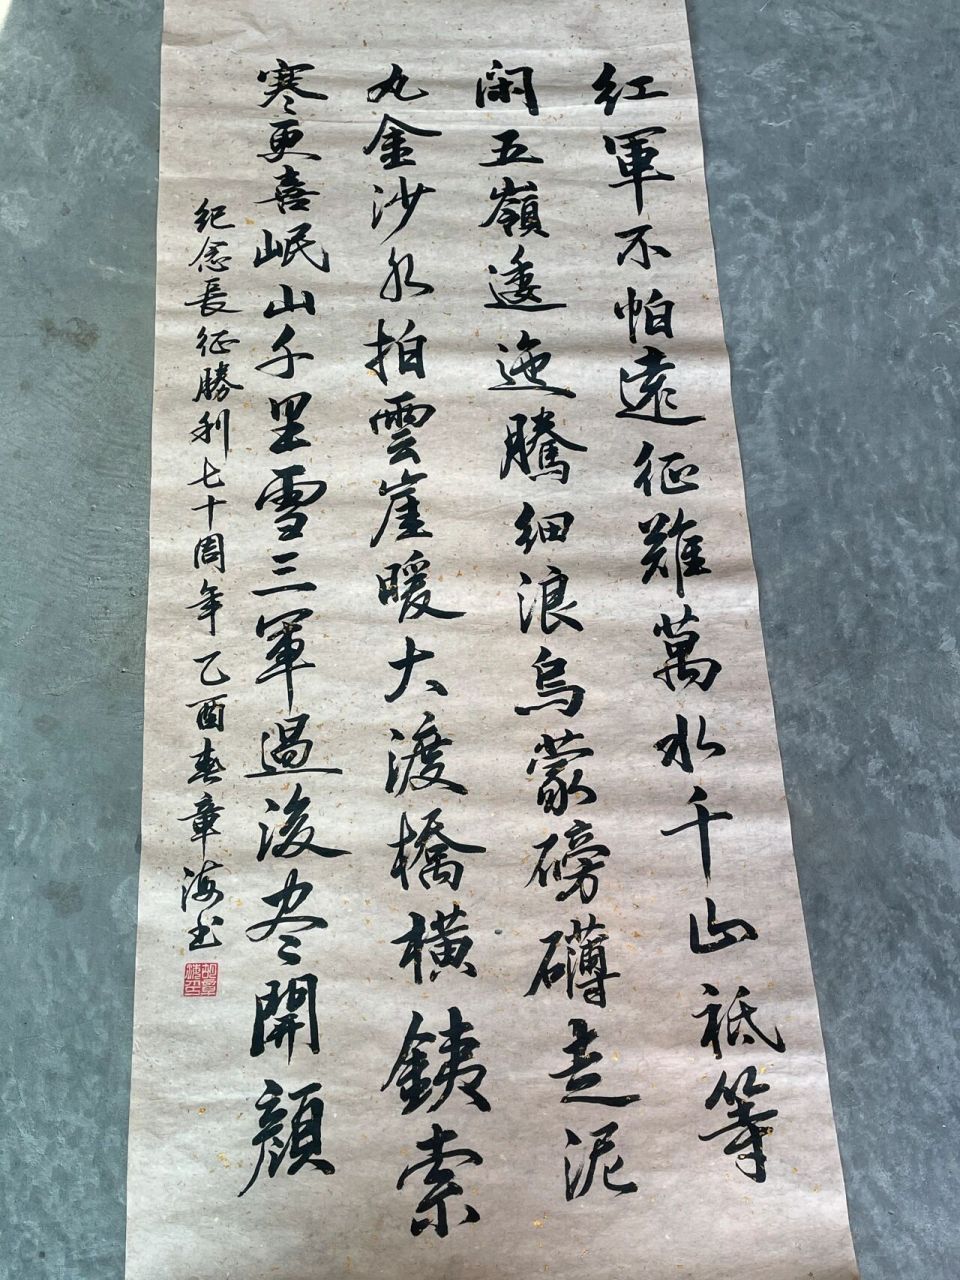 紅軍不怕遠征難萬水千山祗等
閑五嶺逶迤騰細浪烏蒙磅礴走泥
丸金沙水拍雲崖暖大渡橋橫銕索
寒更喜岷山千里雪三軍過後尽開顏
纪念長征勝利七十周年乙酉春章海书